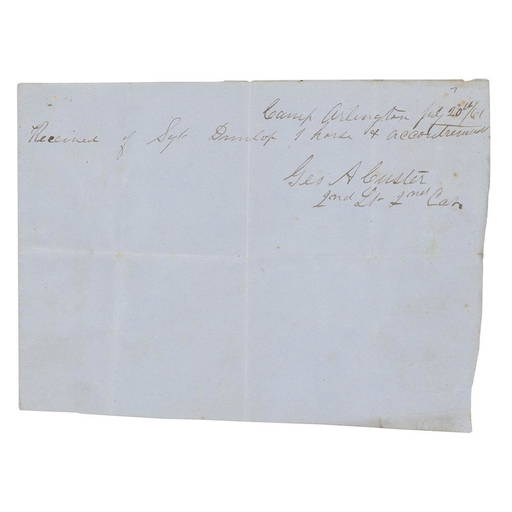 Camp Arlington July 20th/61
Received of Sgt Dunlop 1 horse & accoutrements.
Geo A Custer
2nd Lt 2nd Cav